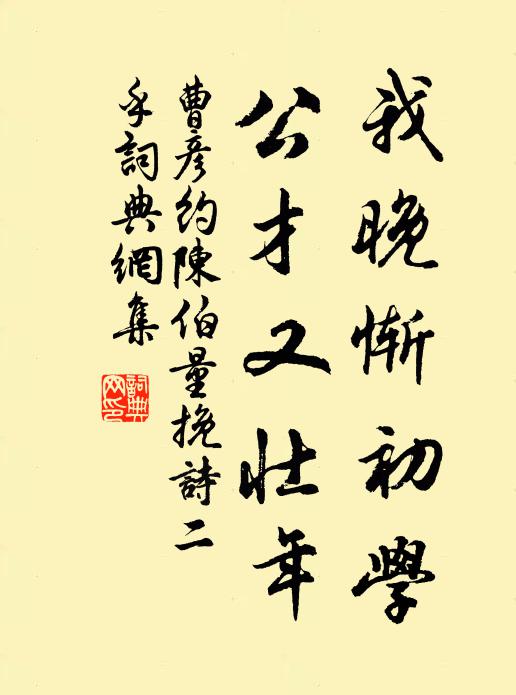 我晚慚初學
公才又壮年
曹彦約陳伯量挽詩二
詞典網集
詞典
网印